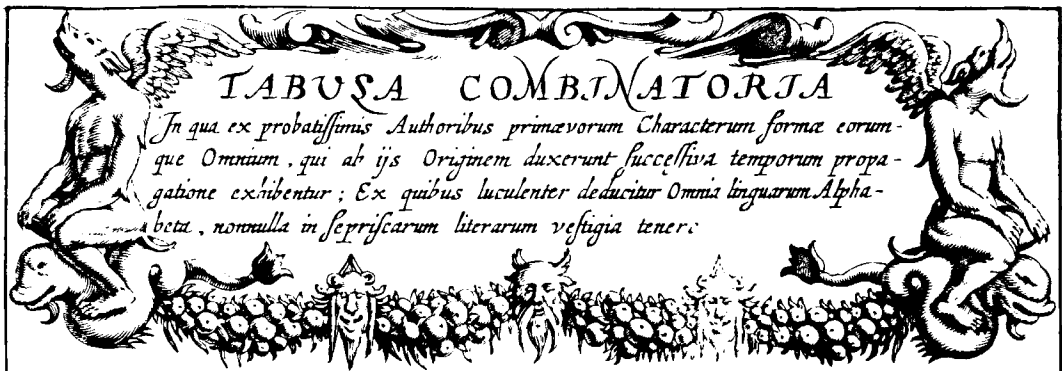 TABUSA COMBINATORIA
In qua ex probatiſſimis Authoribus primævorum Characterum formæ eorum-
que Omnium, qui ab ijs Originem duxerunt ſucceſſiva temporum propa-
gatione exhibentur; Ex quibus luculenter deducitur Omnia linguarum Alpha-
beta, nonnulla in ſepriſcarum literarum veſtigia tenere